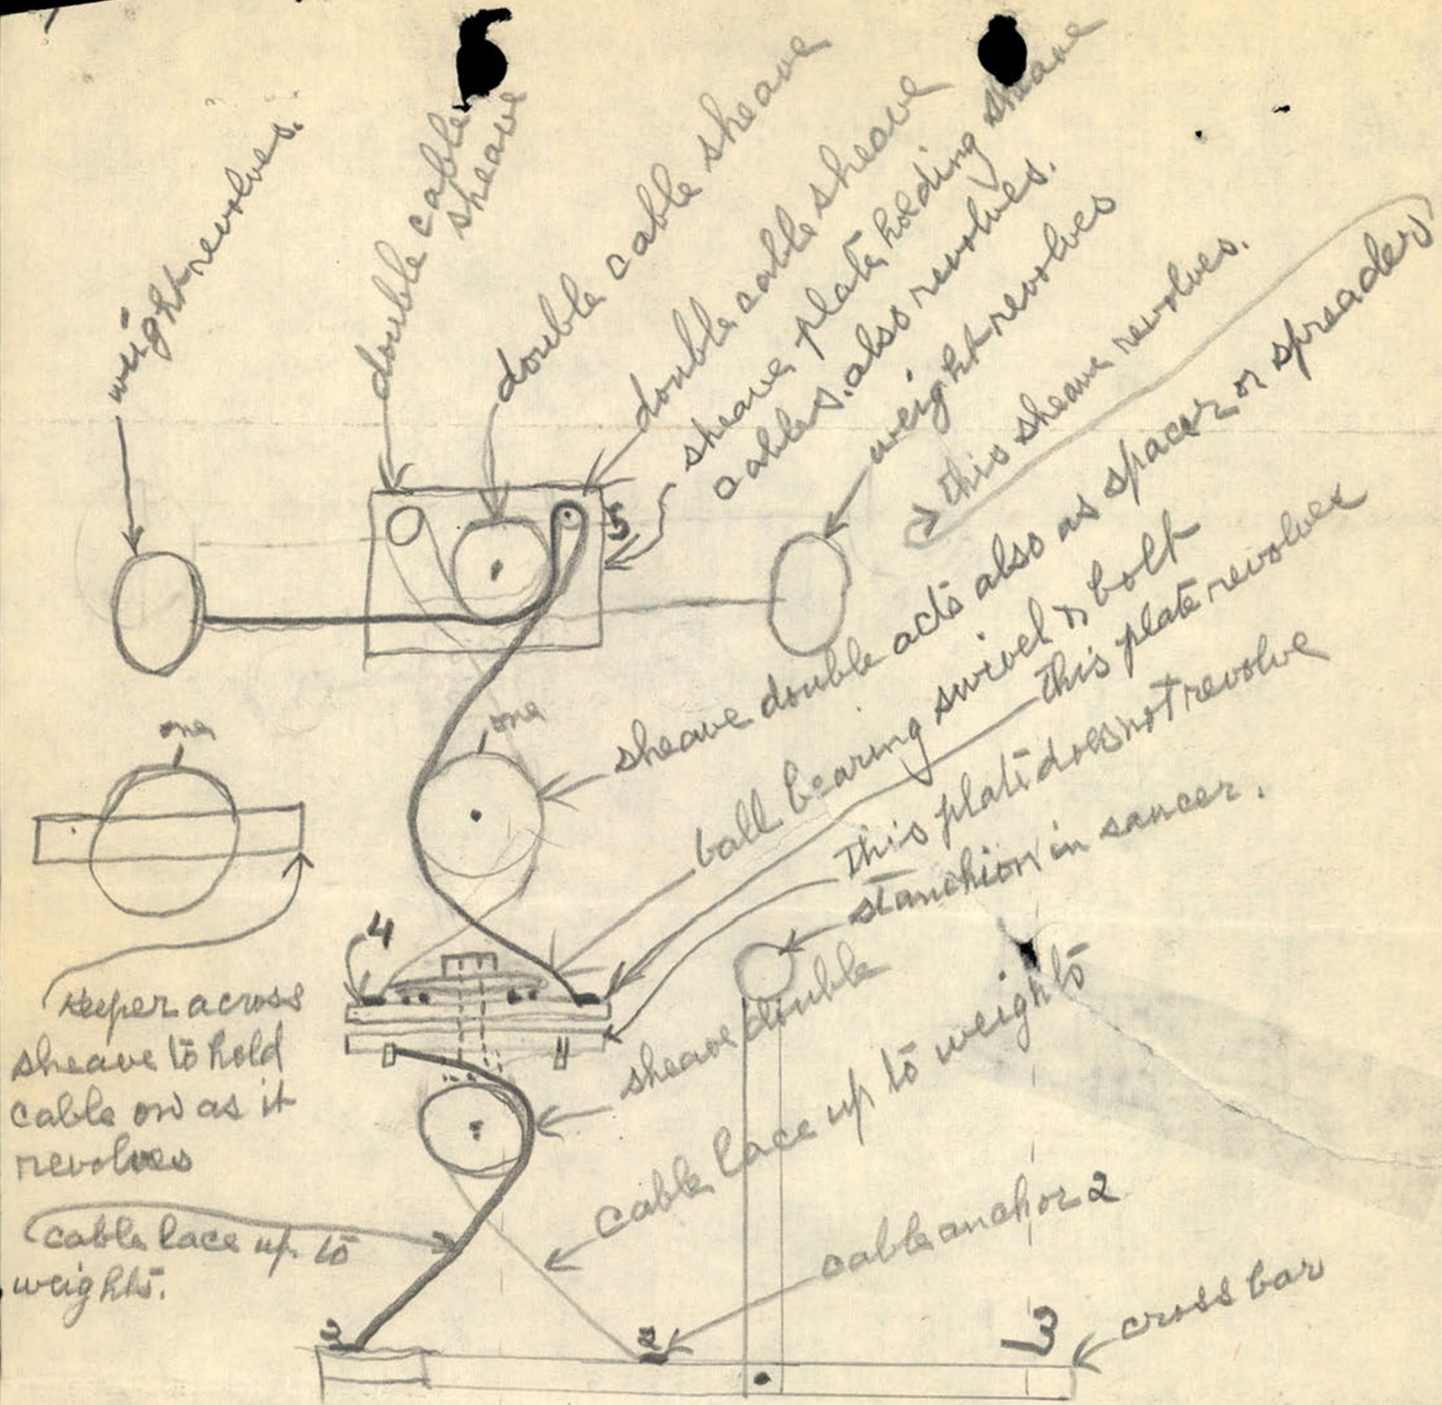 weight revolves.
double cable
sheave
double cable sheave
double cable sheave
sheave plate holding sheave
cables. also revolves.
weight revolves
this sheave revolves.
5
one
one
sheave double acts also as spacer or spreader
ball bearing swivel & bolt
this plate revolves
this plate does not revolve
stanchion in saucer.
4
keeper across
sheave to hold
cable on as it
revolves
sheave double
cable lace up to weights
cable lace up to
weights.
cable anchor 2
cross bar
2
2
3